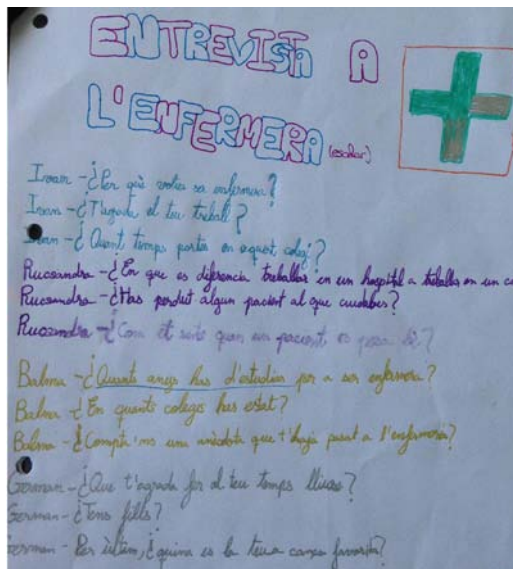 ENTREVISTA A
L'ENFERMERA (escolar)
Ivan - ¿Per què volies ser enfermera?
Ivan - ¿T'agrada el teu treball?
Ivan - ¿Quant temps portes en aquest colegi?
Ruxandra - ¿En que es diferencia treballar en un hospital a treballar en un co
Ruxandra - ¿Has perdut algun pacient al que cuidabes?
Ruxandra - ¿Com et sents quan un pacient es posa bé?
Balma - ¿Quants anys has d'estudiar per a ser enfermera?
Balma - ¿En quants colegs has estat?
Balma - ¿Compta'ns una anècdota que t'haja pasat a l'enfermeria?
German - ¿Que t'agrada fer al teu temps lliure?
German - ¿Tens fills?
German - Per últim, ¿quina es la teua canço favorita?